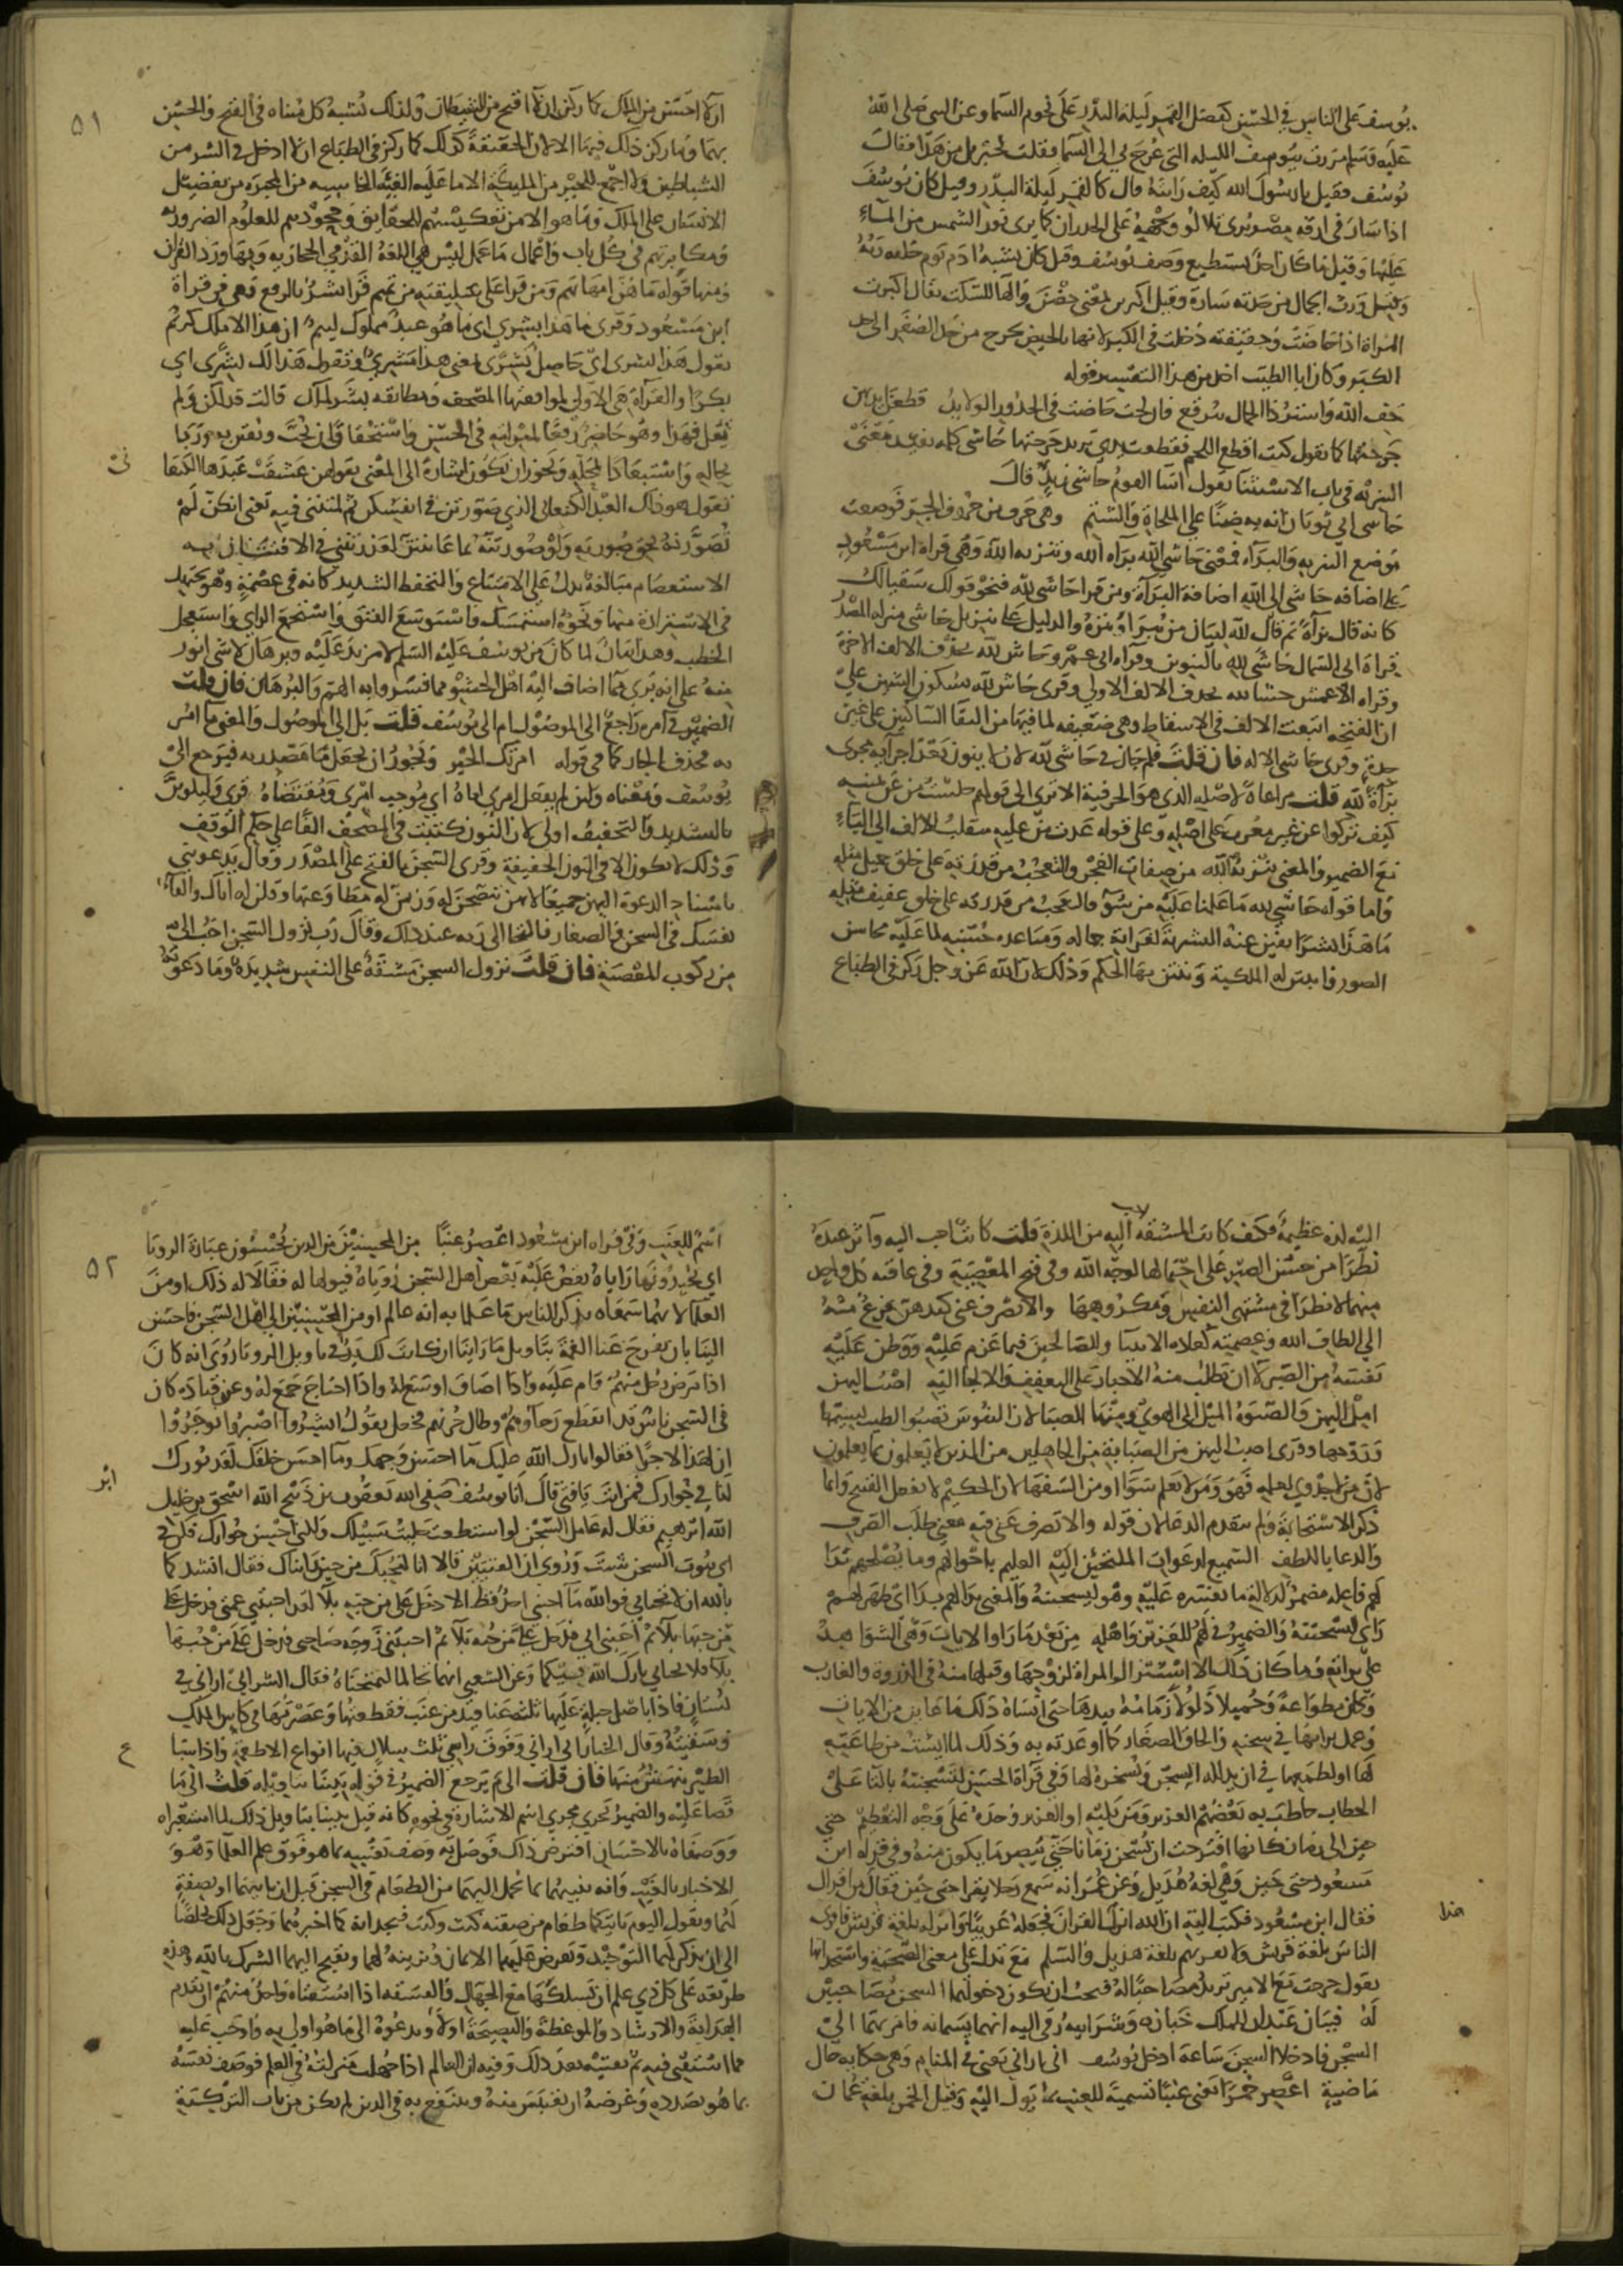 يوسف على الناس في الحسن كفضل القمر ليلة البدر على نجوم السما وعن النبي صلى الله
عليه وسلم مررت بيوسف الليله التي عرج بي الى السما فقلت لجبريل من هذا فقال
يوسف فقيل يا رسول الله كيف رايته قال كالقمر ليلة البدر وقيل كان يوسف
اذا سار في ازقه مصر يرى تلالو وجهه على الجدران كما يرى نور الشمس من الماء
عليها وقيل ما كان احد يستطيع وصف يوسف وقيل كان يشبه ادم يوم خلقه ربه
وقيل ورث الجمال من جدته سارة وقيل اكبرن بمعنى حضن والها للسكت يقال اكبرت
المراة اذا حاضت وحقيقته دخلت في الكبر لانها بالحيض تخرج من حد الصغر الى حد
الكبر وكان ابا الطيب اخذ من هذا التفسير قوله
خف الله واستر ذا الجمال ببرقع فان لحت حاضت في الخدور الولايد قطعن ايديهن
جرحنها كما تقول كنت اقطع اللحم فقطعت يدي تريد جرحتها حاشى كلمه تفيد معنى
التنزيه في باب الاستثنا تقول اسا القوم حاشى زيد قال
حاشى ابي ثوبان ان به ضنا على الملحاة والشتم وهي حرف من حروف الجر فوضعت
موضع التنزيه والبراه فمعنى حاشى الله براه الله وتنزيه الله وهي قراه ابن مسعود
على اضافه حاشى الى الله اضافة البرآة ومن قرا حاشى لله فنحو قولك سقيا لك
كانه قال برآة ثم قال لله لبيان من يبرا وينزه والدليل على تنزيل حاشى منزله المصدر
قراة ابي السمال حاشى لله بالتنوين وقراه ابي عمرو حاش لله بحذف الالف الاخرة
وقراه الاعمش حشا لله بحذف الالف الاولى وقرى حاش لله بسكون الشين على
ان الفتحه اتبعت الالف في الاسقاط وهي ضعيفه لما فيها من التقا الساكنين على غير
حده وقرى حاشى الاله فان قلت فلم جاز في حاشى لله ان لا ينون بعد اجرآيه مجرى
برآة لله قلت مراعاة لاصله الذي هو الحرفية الا ترى الى قولهم جلست من عن يمينه
كيف تركوا عن غير معرب على اصله وعلى قوله غدت من عليه منقلب الالف الى الياء
مع الضمير والمعنى تنزيه الله من صفات العجز والتعجب من قدرته على خلق جميل مثله
واما قوله حاشى لله ما علمنا عليه من سو فالتعجب من قدرته على خلق عفيف مثله
ما هذا بشرا نفين عنه البشرية لغرابة جماله ومباعده حسنه لما عليه محاسن
الصور واثبتن له الملكية وبتتن بها الحكم وذلك لان الله عز وجل ركز في الطباع
٥١
ان لا احسن من الملك كما ركز ان لا اقبح من الشيطان ولذلك يشبه كل متناه في القبح والحسن
بهما وما ركز ذلك فيها الا لان الحقيقة كذلك كما ركز في الطباع ان لا ادخل في الشر من
الشياطين ولا اجمع للخير من المليكة الا ما عليه الفئة الخاسيه من المجبره من تفضيل
الانسان على الملك وما هو الا من تعكيسهم للحقايق وجحودهم للعلوم الضروريه
ومكابرتهم في كل باب واعمال ما عمل ليس هي اللغة القدمى الحجازيه وبها ورد القران
ومنها قوله ما هن امهاتهم ومن قرا على سليقته من تميم قرا بشر بالرفع وهي في قراة
ابن مسعود وقرى ما هذا بشرى اي ما هو عبد مملوك ليم ان هذا الا ملك كريم
تقول هذا بشرى اي حاصل بشرى بمعنى هذا مشترى وتقول هذا لك بشرى اي
بكرا والقرآة هي الاولى لموافقتها المصحف ومطابقه بشر لملك قالت فذلكن ولم
تقل فهذا وهو حاضر رفعا لمنزلته في الحسن واستحقاق ان يحب ويفتن به وربا
بحاله واستبعادا لمحله ويجوز ان تكون اشارة الى المعنى بقولهن عشقت عبدها الكنعاني
تقول هو ذلك العبد الكنعاني الذي صورتن في انفسكن ثم لمتنني فيه تعني انكن لم
تصورنه بحق صورته ولو صورتنه بما عاينتن لعذرتنني في الافتتان به
الاستعصام مبالغة يدل على الامتناع والتحفظ الشديد كانه في عصمة وهو يجتهد
في الاستزادة منها ونحوه استمسك واستوسع الفتق واستجمع الراي واستفحل
الخطب وهذا بيان لما كان من يوسف عليه السلم لا مزيد عليه وبرهان لا شي انور
منه على انه برى مما اضاف اليه اهل الحشو مما فسروا به الهم والبرهان فان قلت
الضمير في آمره راجع الى الموصول ام الى يوسف قلت بل الى الموصول والمعنى ما امر
به فحذف الجار كما في قوله امرتك الخير ويجوز ان تجعل ما مصدريه فيرجع الى
يوسف ومعناه ولئن لم يفعل امري اياه اي موجب امري ومقتضاه قرى وليكونن
بالتشديد والتخفيف اولى لان النون كتبت في المصحف الفا على حكم الوقف
وذلك لا يكون الا في النون الخفيفة وقرى السجن بالفتح على المصدر وقال يدعونني
باسناد الدعوة اليهن جميعا لانهن تنصحن له وزين له مطاوعتها وقلن له اياك والقاء
نفسك في السجن والصغار فالتجا الى ربه عند ذلك وقال رب نزول السجن احب الي
من ركوب المعصية فان قلت نزول السجن مشقة على النفس شديدة وما دعونه
اليه لذه عظيمة فكيف كانت المشقه احب اليه من اللذة قلت كانت احب اليه وآثر عنده
نظرا من حسن الصبر على احتمالها لوجه الله وفي قبح المعصية وفي عاقبه كل واحد
منهما لا نظرا في مشتهى النفس ومكروهها والا تصرف عني كيدهن يفزع منه
الى الطاف الله وعصمته كعادة الانبيا والصالحين فيما عزم عليه ووطن عليه
نفسه من الصبر لا ان يطلب منه الاجبار على التعفف والالجا اليه اصب اليهن
امل اليهن والصبوة الميل الى الهوى ومنها الصبا لان النفوس تصبو اليها لطيب نسيمها
وروحها وقرى اصب اليهن من الصبابة من الجاهلين من الذين لا يعملون بما يعلمون
لان من لا جدوى لعلمه فهو ومن لا يعلم سوا او من السفها لان الحكيم لا يفعل القبيح وانما
ذكر الاستجابة ولم يتقدم الدعا لان قوله والا تصرف عني فيه معنى طلب الصرف
والدعا باللطف السميع لدعوات الملتجئين اليه العليم باحوالهم وما يصلحهم بدا
لهم فاعله مضمر لدلالة ما يفسره عليه وهو ليسجننه والمعنى بدا لهم بدا اي ظهر لهم
راي ليسجننه والضمير في لهم للعزيز واهله من بعد ما راوا الايات وهي الشواهد
على براته وما كان ذلك الا استنزال المراة لزوجها وفتلها منه في الذروة والغارب
وكان مطواعة وحميلا ذلولا زمامه بيدها حتى انساه ذلك ما عاين من الايات
وعمل برايها في سجنه والحاق الصغار كما اوعدته به وذلك لما ايست من طاعته
لها او لطمعها في ان يذلله السجن ويسخره لها وفي قرآة الحسن لتسجننه بالتا على
الخطاب خاطب به بعضهم العزيز ومن يليه او العزيز وحده على وجه التعظيم حتى
حين الى زمان كانها اقترحت ان يسجن زمانا حتى تبصر ما يكون منه وفي قراه ابن
مسعود عتى حين وهي لغة هذيل وعن عمر انه سمع رجلا يقرا عتى حين فقال من اقراك
فقال ابن مسعود فكتب اليه ان الله انزل القران فجعله عربيا وانزله بلغة قريش فاقرى
هذا
الناس بلغة قريش ولا تقرهم بلغة هذيل والسلم مع تدل على معنى الصحبة واستحداثها
تقول خرجت مع الامير تريد مصاحبا له فيجب ان يكون دخولهما السجن مصاحبين
له فتيان عبدان للملك خبازه وشرابيه رقي اليه انهما يسمانه فامر بهما الى
السجن فادخلا السجن ساعة ادخل يوسف اني اراني يعني في المنام وهي حكايه حال
ماضية اعصر خمرا يعني عنبا تسمية للعنب بما يول اليه وقيل الخمر بلغة عمان
٥٢
اسم للعنب وفي قراه ابن مسعود اعصر عنبا من المحسنين من الذين يحسنون عبارة الرويا
اي يجيدونها راياه يقص عليه بعض اهل السجن روياه فيولها له فقالا له ذلك او من
العلما لانهما سمعاه يذكر للناس ما علما به انه عالم او من المحسنين الى اهل السجن فاحسن
الينا بان تفرج عنا الغمة بتاويل ما راينا ان كانت لك يد في تاويل الرويا روى انه كان
اذا مرض رجل منهم قام عليه واذا اضاق اوسع له واذا احتاج جمع له وعن قتادة كان
في السجن ناس قد انقطع رجاوهم وطال حزنهم فجعل يقول ابشروا اصبروا توجروا
ان لهذا لاجرا فقالوا بارك الله عليك ما احسن وجهك وما احسن خلقك لقد بورك
لنا في جوارك فمن انت يا فتى قال انا يوسف صفي الله يعقوب بن ذبيح الله اسحق بن خليل
ابر
الله ابرهيم فقال له عامل السجن لو استطعت خليت سبيلك ولكني احسن جوارك فكن في
اي بيوت السجن شئت وروي ان الفتيين قالا انا لنحبك من حين رايناك فقال انشدكما
بالله ان لا تحباني فوالله ما احبني احد قط الا دخل علي من حبه بلآ لقد احبتني عمتي فدخل علي
من حبها بلآ ثم احبني ابي فدخل علي من حبه بلآ ثم احبتني زوجه صاحبي فدخل علي من حبها
بلآ فلا تحباني بارك الله فيكما وعن الشعبي انهما تحالما ليمتحناه فقال الشرابي اراني في
بستان فاذا باصل حبلة عليها ثلثة عناقيد من عنب فقطعتها وعصرتها في كاس الملك
وسقيته وقال الخباز اني اراني وفوق راسي ثلث سلال فيها انواع الاطعمة واذا سباع
الطير تنهش منها فان قلت الى م يرجع الضمير في قوله نبئنا بتاويله قلت الى ما
قصا عليه والضمير يجري مجرى اسم الاشارة في نحوه كانه قيل نبينا بتاويل ذلك لما استعبراه
ووصفاه بالاحسان افترض ذلك فوصل به وصف نفسه بما هو فوق علم العلما وهو
الاخبار بالغيب وانه ينبيهما بما يحمل اليهما من الطعام في السجن قبل ان ياتيهما او يصفه
لهما ويقول اليوم ياتيكما طعام من صفته كيت وكيت فيجدانه كما اخبرهما وجعل ذلك تخلصا
الى ان يذكر لهما التوحيد ويعرض عليهما الايمان ويزينه لهما ويقبح اليهما الشرك بالله وهذه
طريقه على كل ذي علم ان يسلكها مع الجهال والفسقه اذا استفتاه واحد منهم ان يقدم
الهداية والارشاد والموعظة والنصيحة اولا ويدعوه الى ما هو اولى به واوجب عليه
مما استفتى فيه ثم يفتيه بعد ذلك وفيه ان العالم اذا جهلت منزلته في العلم فوصف نفسه
بما هو بصدده وغرضه ان يقتبس منه وينتفع به في الدين لم يكن من باب التزكية